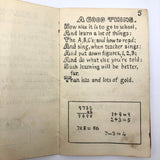 5
A GOOD THING.
Now nice it is to go to school,
And learn a lot of things:
The A, B, C's; and how to read;
And sing, when teacher sings;
And put down figures, 1, 2, 3;
And do what else you're told:
Such learning will be better, far,
Than lots and lots of gold.
7+8=
2+3=5
7x8=56